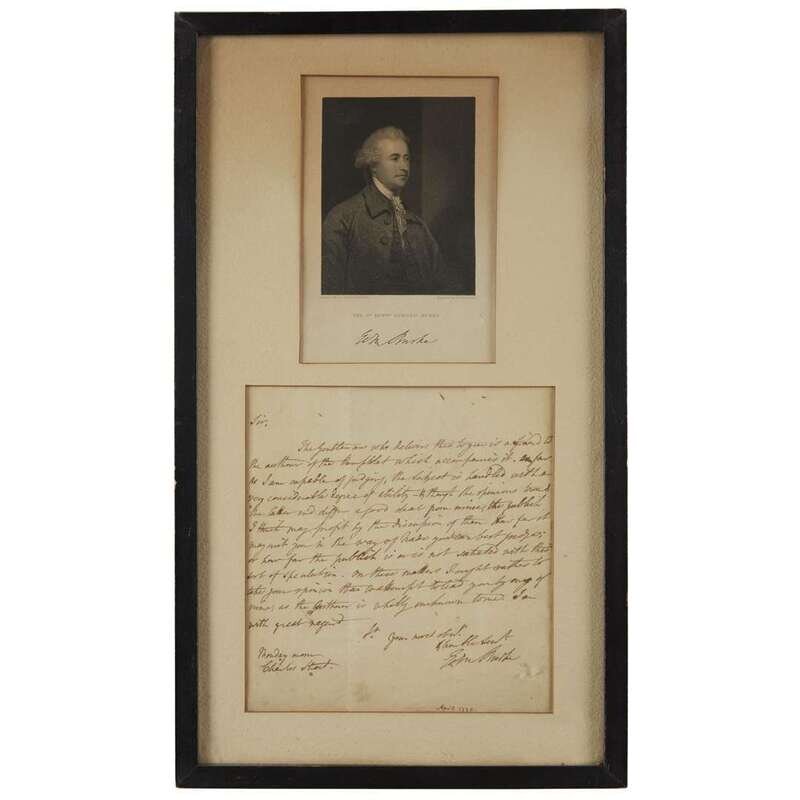 THE RT. HONBLE EDMUND BURKE
Edm Burke
Sir,
The Gentleman who delivers this to you is a friend to
the authour of the Pamphlet which accompanies it. So far
as I am capable of judging, the subject is handled with a
very considerable degree of ability &
differ a good deal from mine; the publick
I think may profit by the discussion of them. How far it
may suit you in the way of Trade you can best judge;
or how far the publick is or is not satiated with this
sort of speculation. On these matters I ought rather to
take your opinion than to attempt to lead you by any of
mine; as the Authour is wholly unknown to me. I am
with great regard
Sir
Your most obt.
& humble Servt
Edm Burke
Monday morn
Charles Street.
April